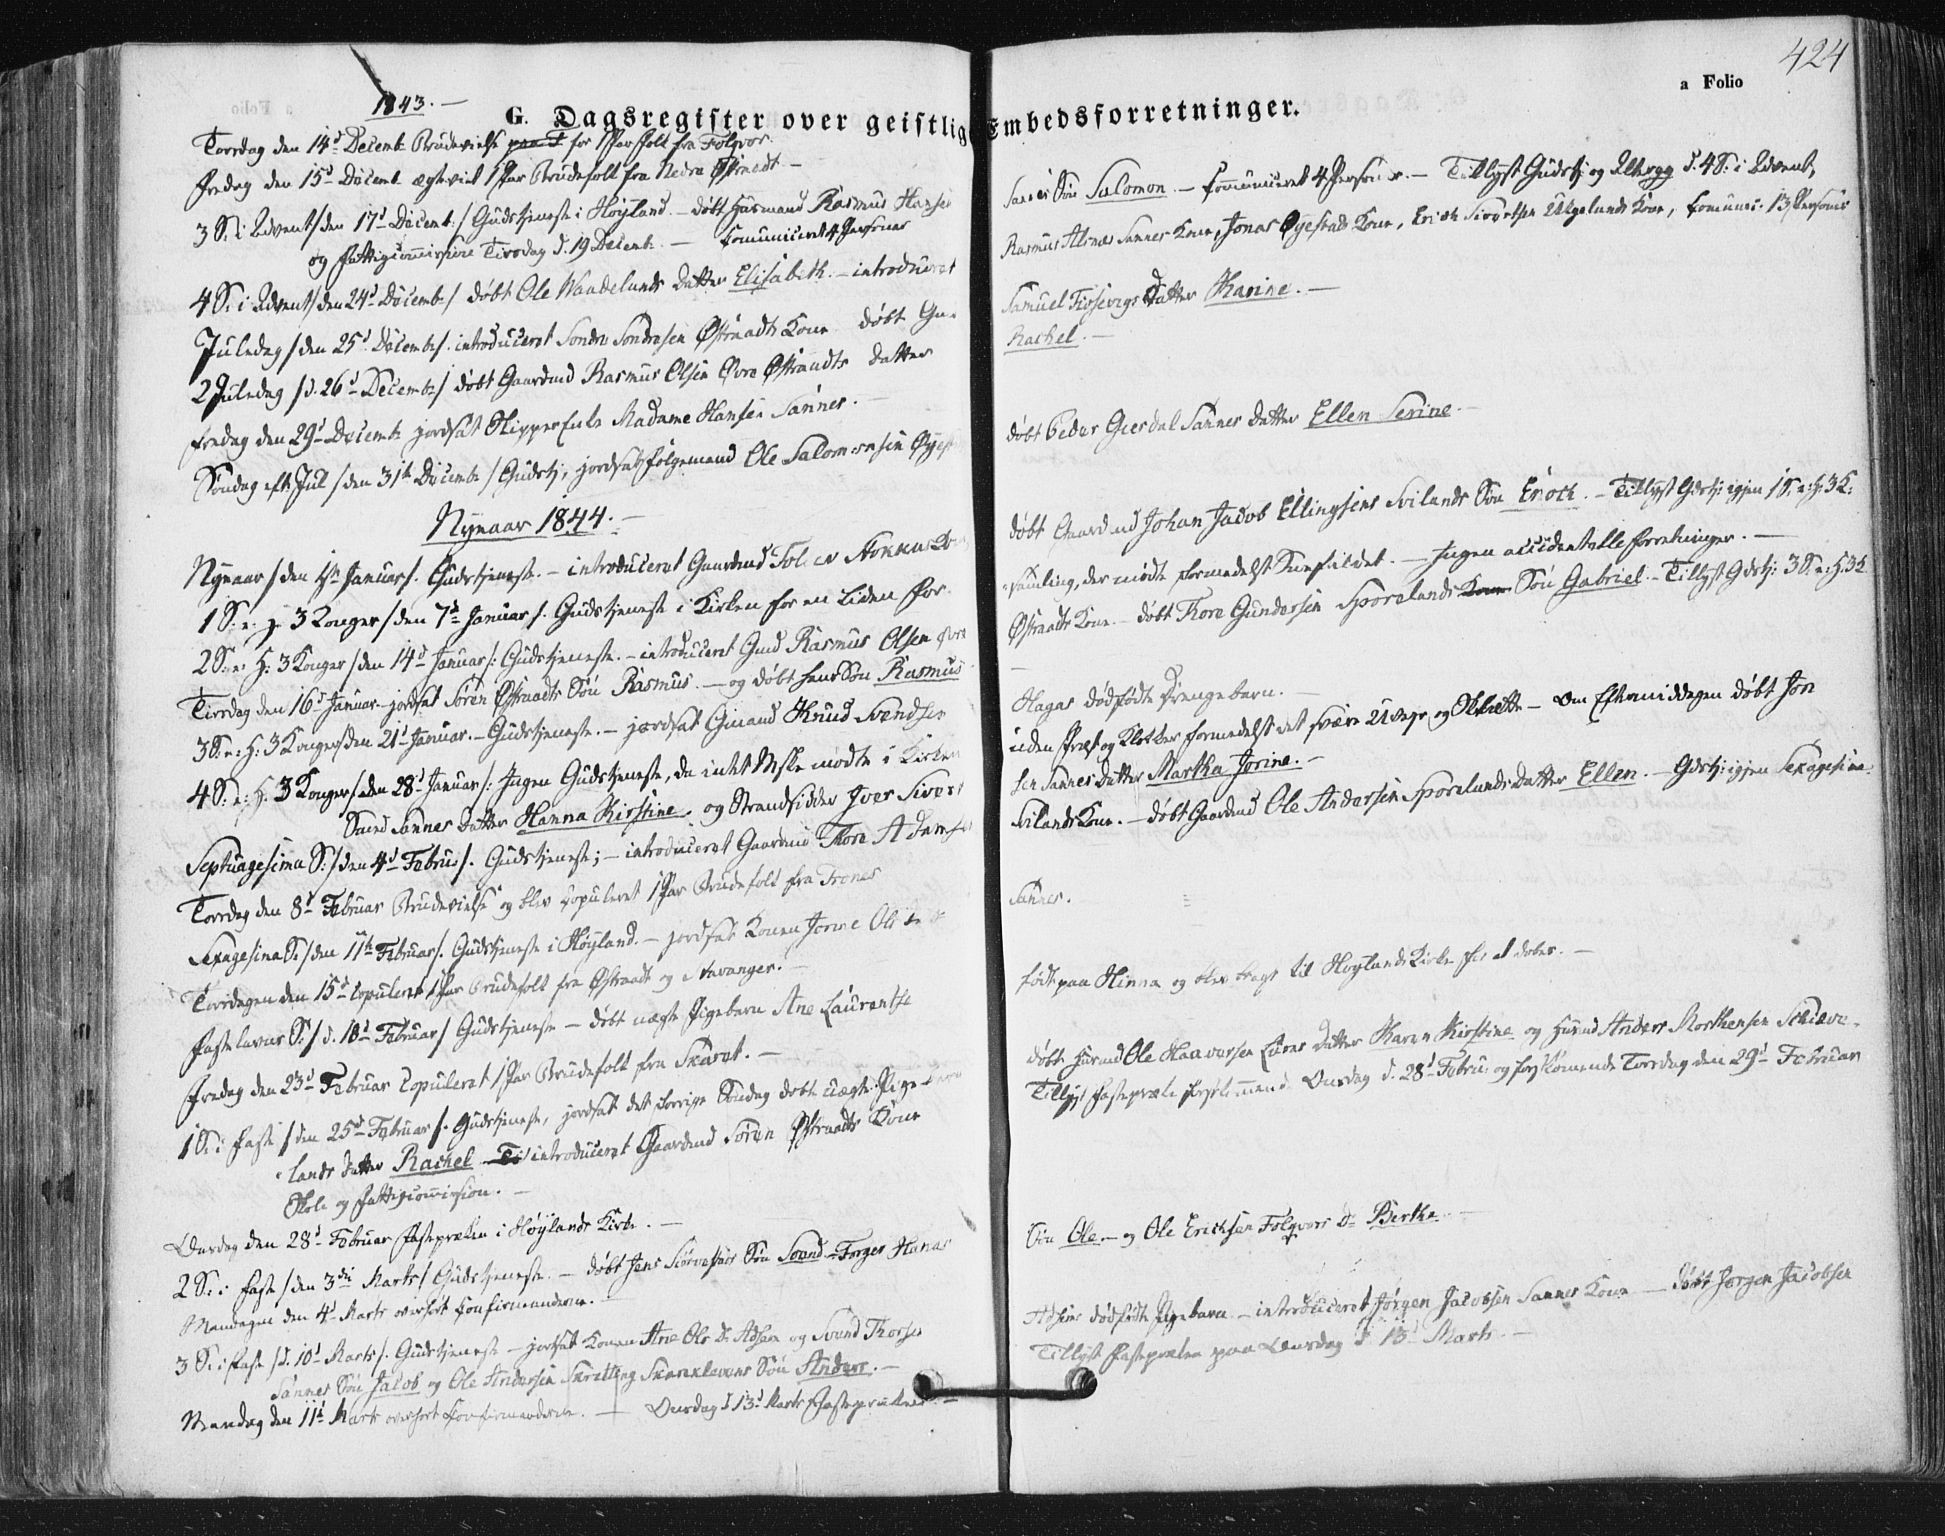 424
a Folio
1843. —
G. Dagsregister over geistlige Embedsforretninger.
Torsdag den 14d Decemb. Brudevielse for 1 Par Folk fra Folgvor.
Fredag den 15d Decemb. ægteviet 1 Par Brudefolk fra Nedre Østraadt —
3 S. i Advent /den 17d Decemb:/ Gudstjeneste i Høyland — døbt Huusmand Rasmus Hansen
og Fattigcommission Tirsdag d. 19 Decemb. — Communiceret 4 Personer
4 S. i Advent /den 24d Decemb/ døbt Ole Waadelands Datter Elisabeth. — introduceret
Juledag /den 25d Decemb/. introduceret Sondre Sondresen Østraadts Kone døbt
2 Juledag /d. 26d Decemb/ døbt Gaardmd Rasmus Olsen Øvre Østraadts Datter
Fredag den 29d Decemb jordsat Skipper Madame Hansen Sannes. —
Søndag eft. Jul /den 31te Decemb/ Gudstj, jordsat Følgemand Ole Salomonsen
Nynaar 1844. —
Nynaar /den 1ste Januar/. Gudstjeneste. — introduceret Gaardmd
1 S. e. H. 3 Konger /den 7de Januar/. Gudstjeneste i Kirken for en liden For-
2 S. e. H: 3 Konger /den 14d Januar/: Gudstjeneste. — introduceret Gmd Rasmus Olsen Øvre
Tirsdag den 16d Januar jordsat Sören Østraadts Søn Rasmus. — og døbt hans Søn Rasmus
3 S. e. H: 3 Konger /den 21d Januar. — Gudstjeneste. — jordsat Gmand Knud Svendsen
4 S. e. H. 3 Konger /den 28d Januar/: Ingen Gudstjeneste, da intet Mske mødte i Kirken
Sannes Datter Hanna Kirstine og Strandsidder Iver Sivert
Septuagesima S: /den 4d Febru:/. Gudstjeneste; — introduceret Gaardmd Thore Adamsen
Torsdag den 8d Februar Brudevielse og blev copuleret 1 Par Brudefolk fra Trones
Sexagesima S. /den 11te Februar/. Gudstjeneste i Høyland. — jordsat Konen
Torsdagen den 15d copuleret 1 Par Brudefolk fra Østraadt og Stavanger. —
Fastelavns S: /d. 18d Februar/ Gudstjeneste — døbt uægte Pigebarn Ane Laurentse
Fredag den 23d Februar copuleret 1 Par Brudefolk fra Skaret. —
1 S. i Faste /den 25d Februar/. Gudstjeneste, jordsat det forrige Søndag døbte uægte Pigebarn
lands Datter Rachel — introduceret Gaardmd Søren Østraadts Kone
Skole og Fattigcommission. —
Onsdag den 28d Februar Fasteprædiken i Høylands Kirke. —
2 S. i Faste /den 3die Marts/ Gudstjeneste. — døbt Jens Søn
Mandagen den 4d Marts overhørt Confirmanderne. —
3 S. i Faste /d. 10d Marts/. Gudstjeneste — jordsat Konen Ane Ols D. Adsen og Svend
Sannes Søn Jacob og Ole Andersen Skretting Søn Anders. —
Mandag den 11d Marts overhørt Confirmanderne. — Onsdag d 13d Marts Fasteprædiken —
Sannes Søn Salomon. — Communiceret 4 Personer. — Tillyst Gudstj og Altergg d. 4 S. i Advent,
Rasmus Sannes Kone, Jonas Øyestads Kone, Erich Sivertsen Kone, Communi. 13 Personer
Samuel Datter Karine. —
Rachel. —
døbt Peder Giesdal Sannes Datter Ellen Serine. —
døbt Gaardmd Johan Jacob Ellingsens Svilands Søn Enoch. — Tillyst Gdstj: igjen 1 S. e. H. 3 K:
samling, der mødte formedelst Sneefaldet. — Ingen accidentelle Forretninger. —
Østraadts Kone — døbt Thore Gundersen Sporelands Kone Søn Gabriel — Tillyst Gdstj: 3 S. e: H: 3 K.
—
Hagas dødfødte Drengebarn. —
uden Præst og Klokker formedelst det svære — Om Eftermiddagen døbt Jon
sen Sannes Datter Martha Jorine. —
Svilands Kone. — døbt Gaardmd Ole Andersen Sporelands Datter Ellen. — Gdstj: igjen Sexagesima.
Sannes.
født paa Hinna og blev bragt til Høylands Kirke for at døbes. —
døbt Husmd Ole Haavorsen Datter Karen Kirstine og Husmd Anders Morthensen
Tillyst Fasteprædk. førstkommende Onsdag d. 28d Febru: og førstkomende Torsdag den 29d Februar
Søn Ole — og Ole Erichsen Folgvors D. Berthe —
Adsens dødfødte Pigebarn — introduceret Jørgen Jacobsen Sannes Kone — døbt Jørgen Jacobsen
Tillyst Fasteprædken paa Onsdag d 13d Marts. —